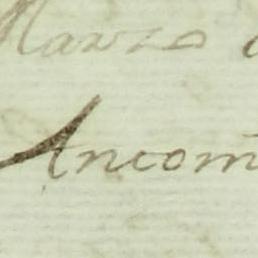 Marzo
Ancom